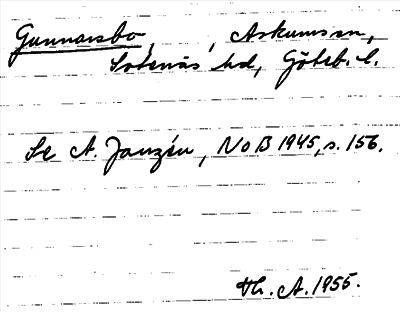 Gunnarsbo, , Askums sn,
Sotenäs hd, Göteb. l.
Se A. Janzén, NoB 1945, s. 156.
Th. A. 1955.